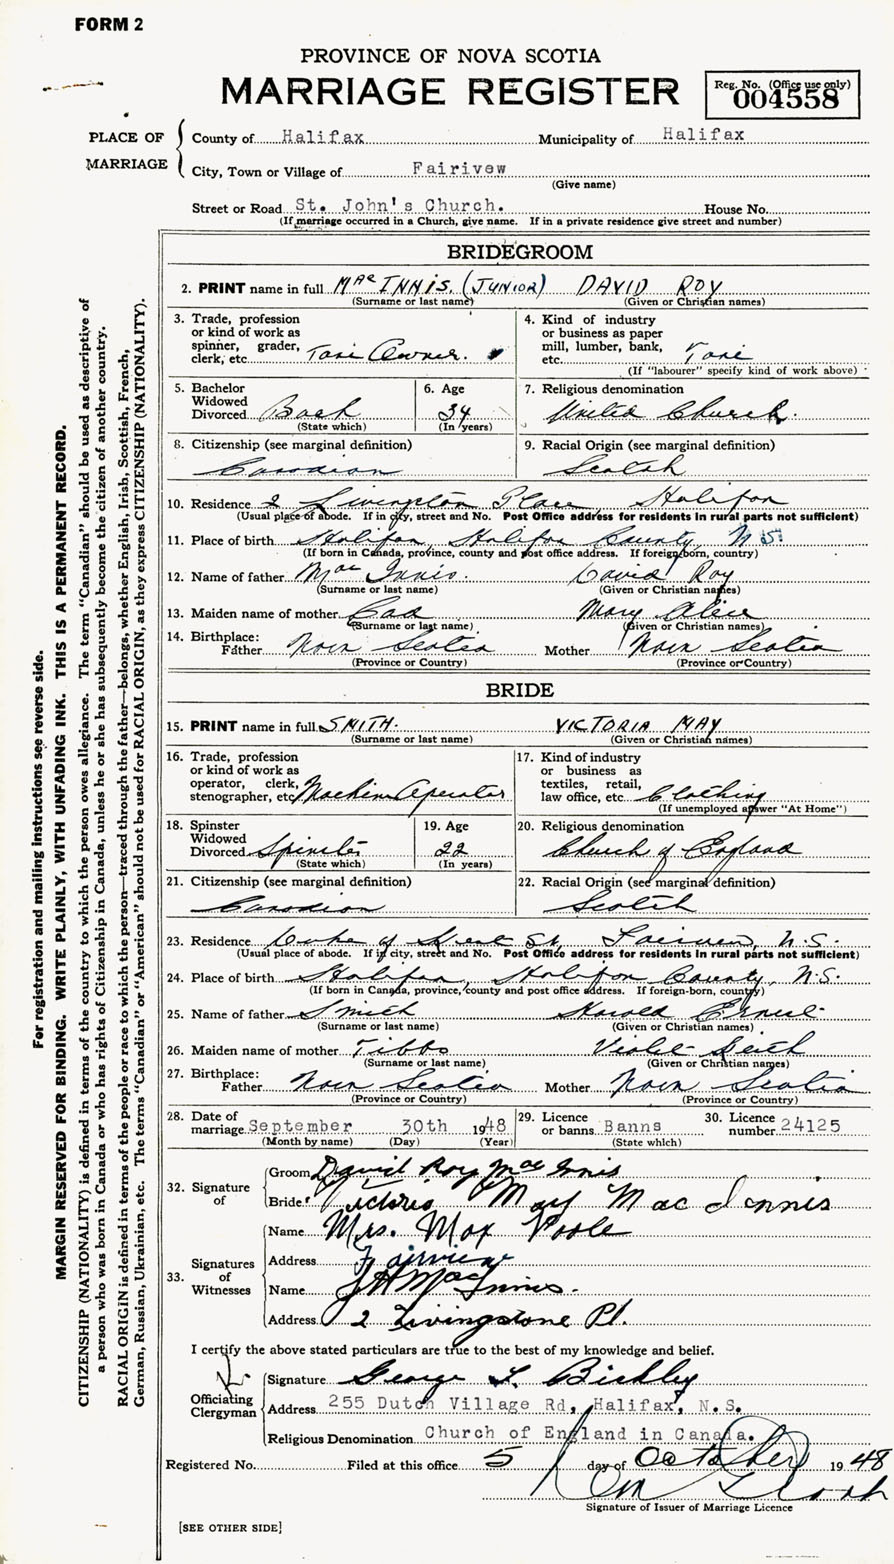 FORM 2
PROVINCE OF NOVA SCOTIA
MARRIAGE REGISTER
Reg. No. (Office use only)
004558
PLACE OF MARRIAGE
County of Halifax Municipality of Halifax
City, Town or Village of Fairivew
(Give name)
Street or Road St. John's Church. House No.
(If marriage occurred in a Church, give name. If in a private residence give street and number)
BRIDEGROOM
2. PRINT name in full Mac INNIS. (JUNIOR) DAVID ROY
(Surname or last name) (Given or Christian names)
3. Trade, profession or kind of work as spinner, grader, clerk, etc. Taxi Owner.
4. Kind of industry or business as paper mill, lumber, bank, etc. Taxi
(If "labourer" specify kind of work above)
5. Bachelor Widowed Divorced Bach
(State which)
6. Age 34
(In years)
7. Religious denomination
United Church.
8. Citizenship (see marginal definition)
Canadian
9. Racial Origin (see marginal definition)
Scotch
10. Residence 2 Livingston Place Halifax
(Usual place of abode. If in city, street and No. Post Office address for residents in rural parts not sufficient)
11. Place of birth Halifax, Halifax County, N.S.
(If born in Canada, province, county and post office address. If foreign born, country)
12. Name of father Mac Innis. David Roy
(Surname or last name) (Given or Christian names)
13. Maiden name of mother Mary Alice
(Surname or last name) (Given or Christian names)
14. Birthplace:
Father Nova Scotia Mother Nova Scotia
(Province or Country) (Province or Country)
BRIDE
15. PRINT name in full SMITH. VICTORIA MAY
(Surname or last name) (Given or Christian names)
16. Trade, profession or kind of work as operator, clerk, stenographer, etc. Machine Operator
17. Kind of industry or business as textiles, retail, law office, etc. Clothing
(If unemployed answer "At Home")
18. Spinster Widowed Divorced Spinster
(State which)
19. Age 22
(In years)
20. Religious denomination
Church of England
21. Citizenship (see marginal definition)
Canadian
22. Racial Origin (see marginal definition)
Scotch
23. Residence Duke of Kent St, Fairview, N.S.
(Usual place of abode. If in city, street and No. Post Office address for residents in rural parts not sufficient)
24. Place of birth Halifax, Halifax County, N.S.
(If born in Canada, province, county and post office address. If foreign-born, country)
25. Name of father Smith Harold Ernest
(Surname or last name) (Given or Christian names)
26. Maiden name of mother Tibbs Violet
(Surname or last name) (Given or Christian names)
27. Birthplace:
Father Nova Scotia Mother Nova Scotia
(Province or Country) (Province or Country)
28. Date of marriage September 30th 1948
(Month by name) (Day) (Year)
29. Licence or banns Banns
(State which)
30. Licence number 24125
32. Signature of
Groom David Roy Mac Innis
Bride Victoria May Mac Innis
33. Signatures of Witnesses
Name Mrs. Max Poole
Address Fairview
Name MacInnis.
Address 2 Livingstone Pl.
I certify the above stated particulars are true to the best of my knowledge and belief.
Officiating Clergyman
Signature George
Address 255 Dutch Village Rd, Halifax, N.S.
Religious Denomination Church of England in Canada.
Registered No. Filed at this office 5 day of October 1948
Signature of Issuer of Marriage Licence
[SEE OTHER SIDE]
For registration and mailing instructions see reverse side.
MARGIN RESERVED FOR BINDING. WRITE PLAINLY, WITH UNFADING INK. THIS IS A PERMANENT RECORD.
CITIZENSHIP (NATIONALITY) is defined in terms of the country to which the person owes allegiance. The term "Canadian" should be used as descriptive of
a person who was born in Canada or who has rights of Citizenship in Canada, unless he or she has subsequently become the citizen of another country.
RACIAL ORIGIN is defined in terms of the people or race to which the person—traced through the father—belongs, whether English, Irish, Scottish, French,
German, Russian, Ukrainian, etc. The terms "Canadian" or "American" should not be used for RACIAL ORIGIN, as they express CITIZENSHIP (NATIONALITY).